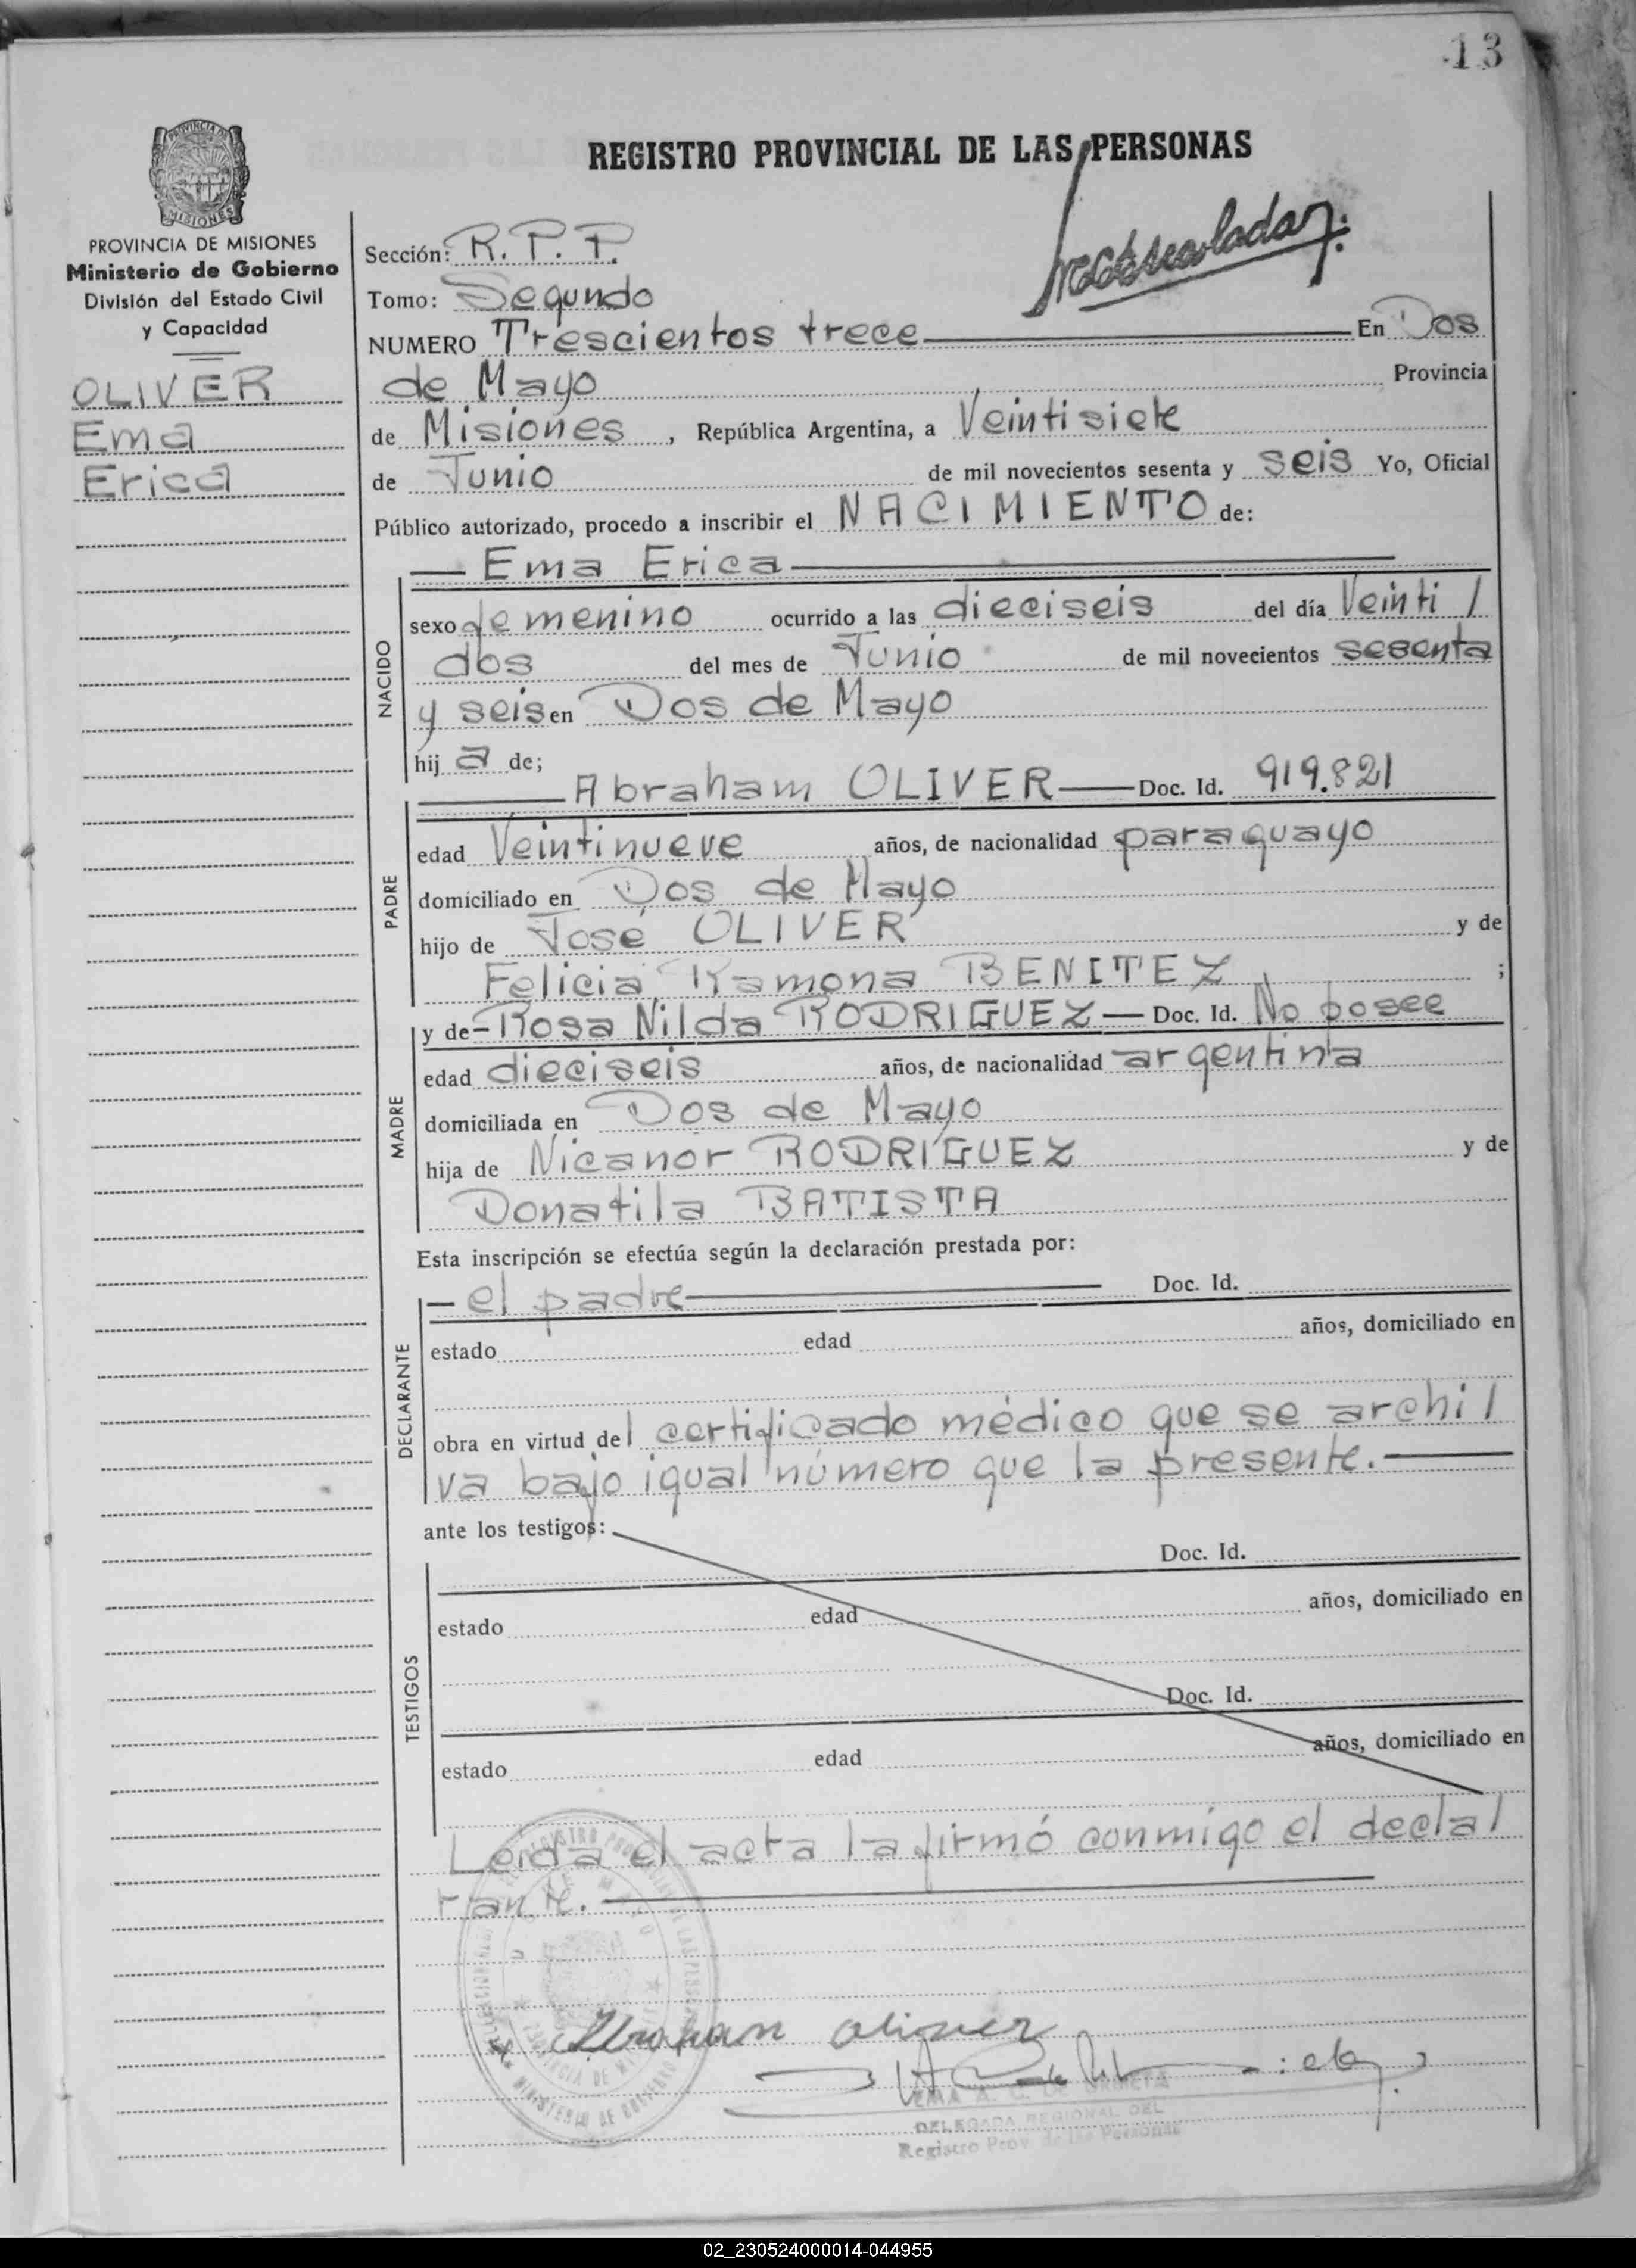 13
REGISTRO PROVINCIAL DE LAS PERSONAS
PROVINCIA DE MISIONES
Ministerio de Gobierno
División del Estado Civil
y Capacidad
OLIVER
Ema
Erica
Sección: R. P. P.
Tomo: Segundo
NUMERO Trescientos trece En Dos
de Mayo Provincia
de Misiones, República Argentina, a Veintisiete
de Junio de mil novecientos sesenta y seis Yo, Oficial
Público autorizado, procedo a inscribir el NACIMIENTO de:
NACIDO
— Ema Erica —
sexo femenino ocurrido a las dieciseis del día Veinti /
dos del mes de Junio de mil novecientos sesenta
y seis en Dos de Mayo
hij a de;
PADRE
— Abraham OLIVER — Doc. Id. 919.821
edad Veintinueve años, de nacionalidad paraguayo
domiciliado en Dos de Mayo
hijo de José OLIVER y de
Felicia Ramona BENITEZ ;
MADRE
y de - Rosa Nilda RODRIGUEZ — Doc. Id. No posee
edad dieciseis años, de nacionalidad argentina
domiciliada en Dos de Mayo
hija de Nicanor RODRIGUEZ y de
Donatila BATISTA
Esta inscripción se efectúa según la declaración prestada por:
DECLARANTE
— el padre — Doc. Id.
estado edad años, domiciliado en
obra en virtud del certificado médico que se archi /
va bajo igual número que la presente. —
ante los testigos:
TESTIGOS
Doc. Id.
estado edad años, domiciliado en
Doc. Id.
estado edad años, domiciliado en
Leída el acta la firmó conmigo el decla /
rante. —
Abraham Oliver
DELEGADA REGIONAL DEL
Registro Prov. de las Personas
02_230524000014-044955